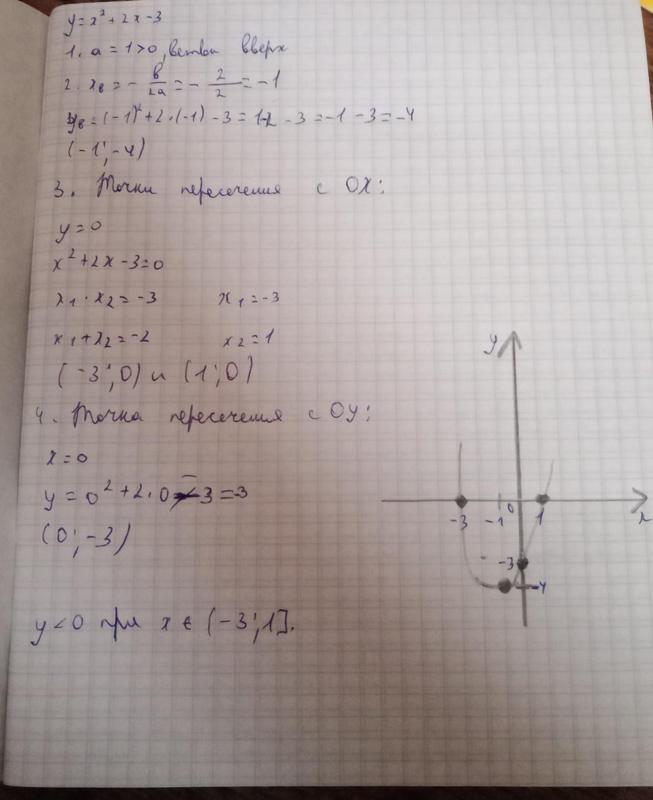 y=x²+2x-3
1. a=1>0, ветви вверх
2. xв = - в/2a = - 2/2 = -1
yв = (-1)²+2·(-1)-3=1-2-3=-1-3=-4
(-1;-4)
3. Точки пересечения с OX:
y=0
x²+2x-3=0
x₁·x₂=-3 x₁=-3
x₁+x₂=-2 x₂=1
(-3;0) и (1;0)
4. Точка пересечения с OY:
x=0
y=0²+2·0-3=-3
(0;-3)
y<0 при x∈(-3;1].
y
-3 -1 0 1 x
-3
-4